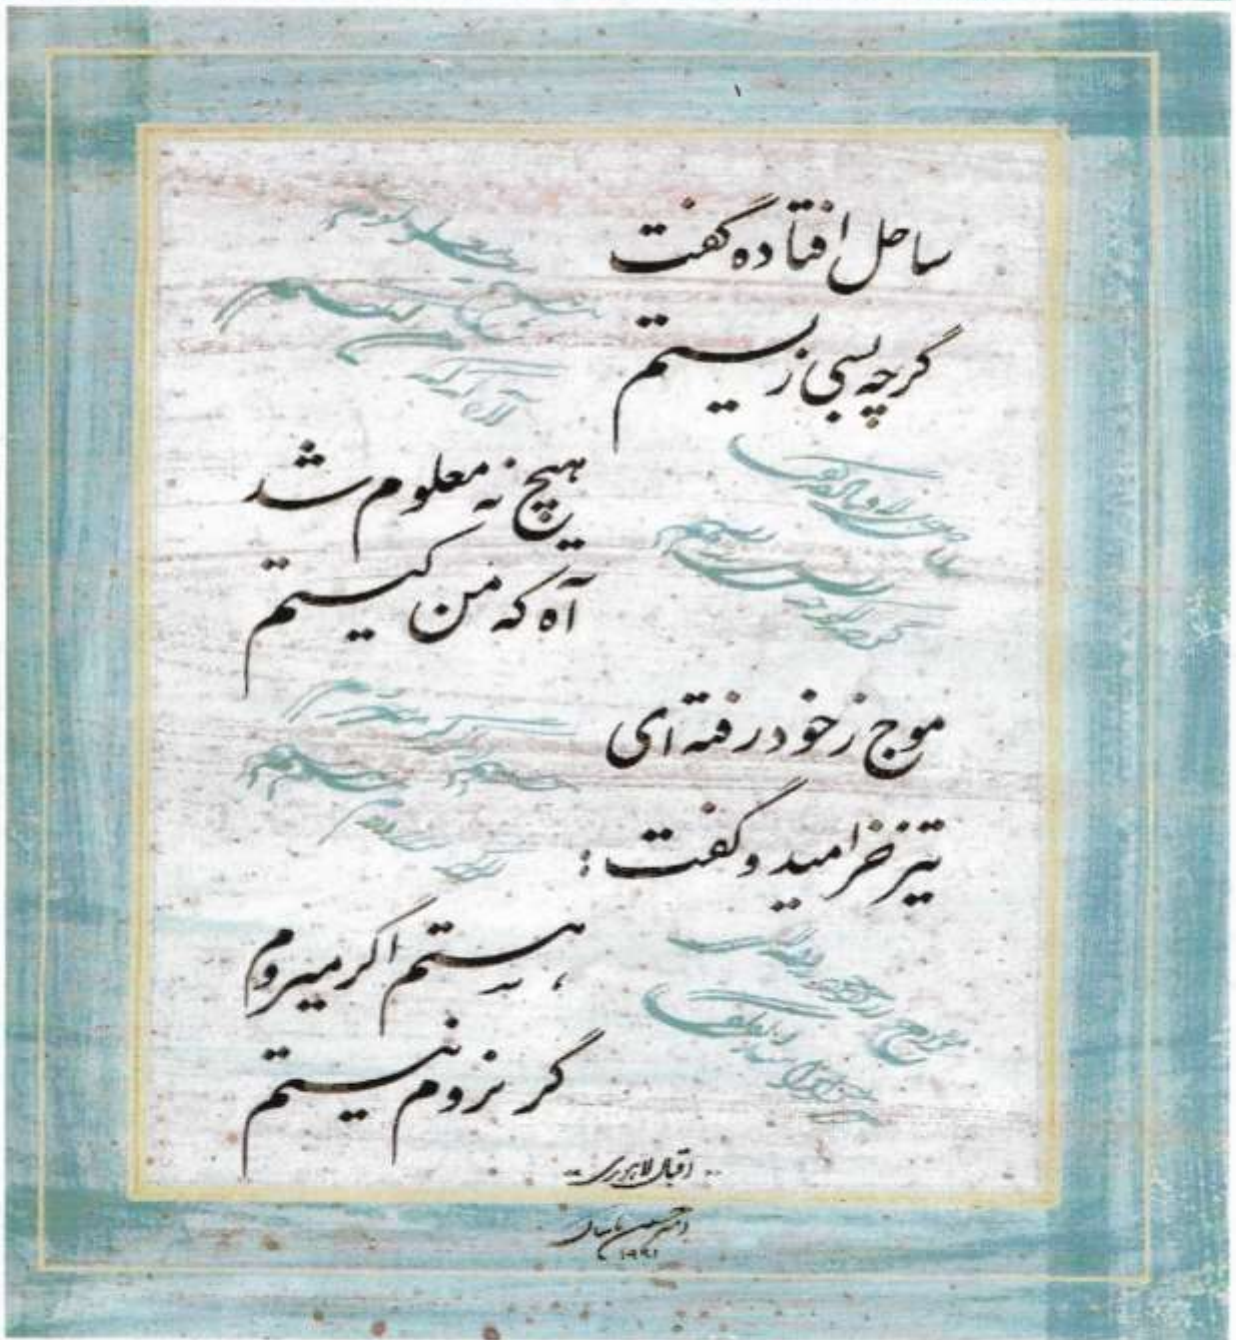 ۱
ساحل افتاده گفت
گرچه بسی زیستم
هیچ نه معلوم شد
آه که من کیستم
موج ز خود رفته‌ای
تیز خرامید و گفت :
هستم اگر میروم
گر نروم نیستم
اقبال لاهوری